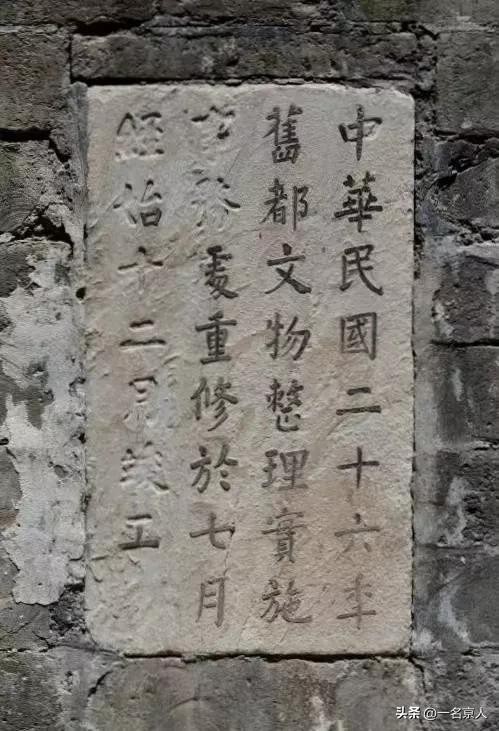 中華民國二十六年
舊都文物整理實施
事務處重修於七月
經始十二月竣工
头条 @一名京人